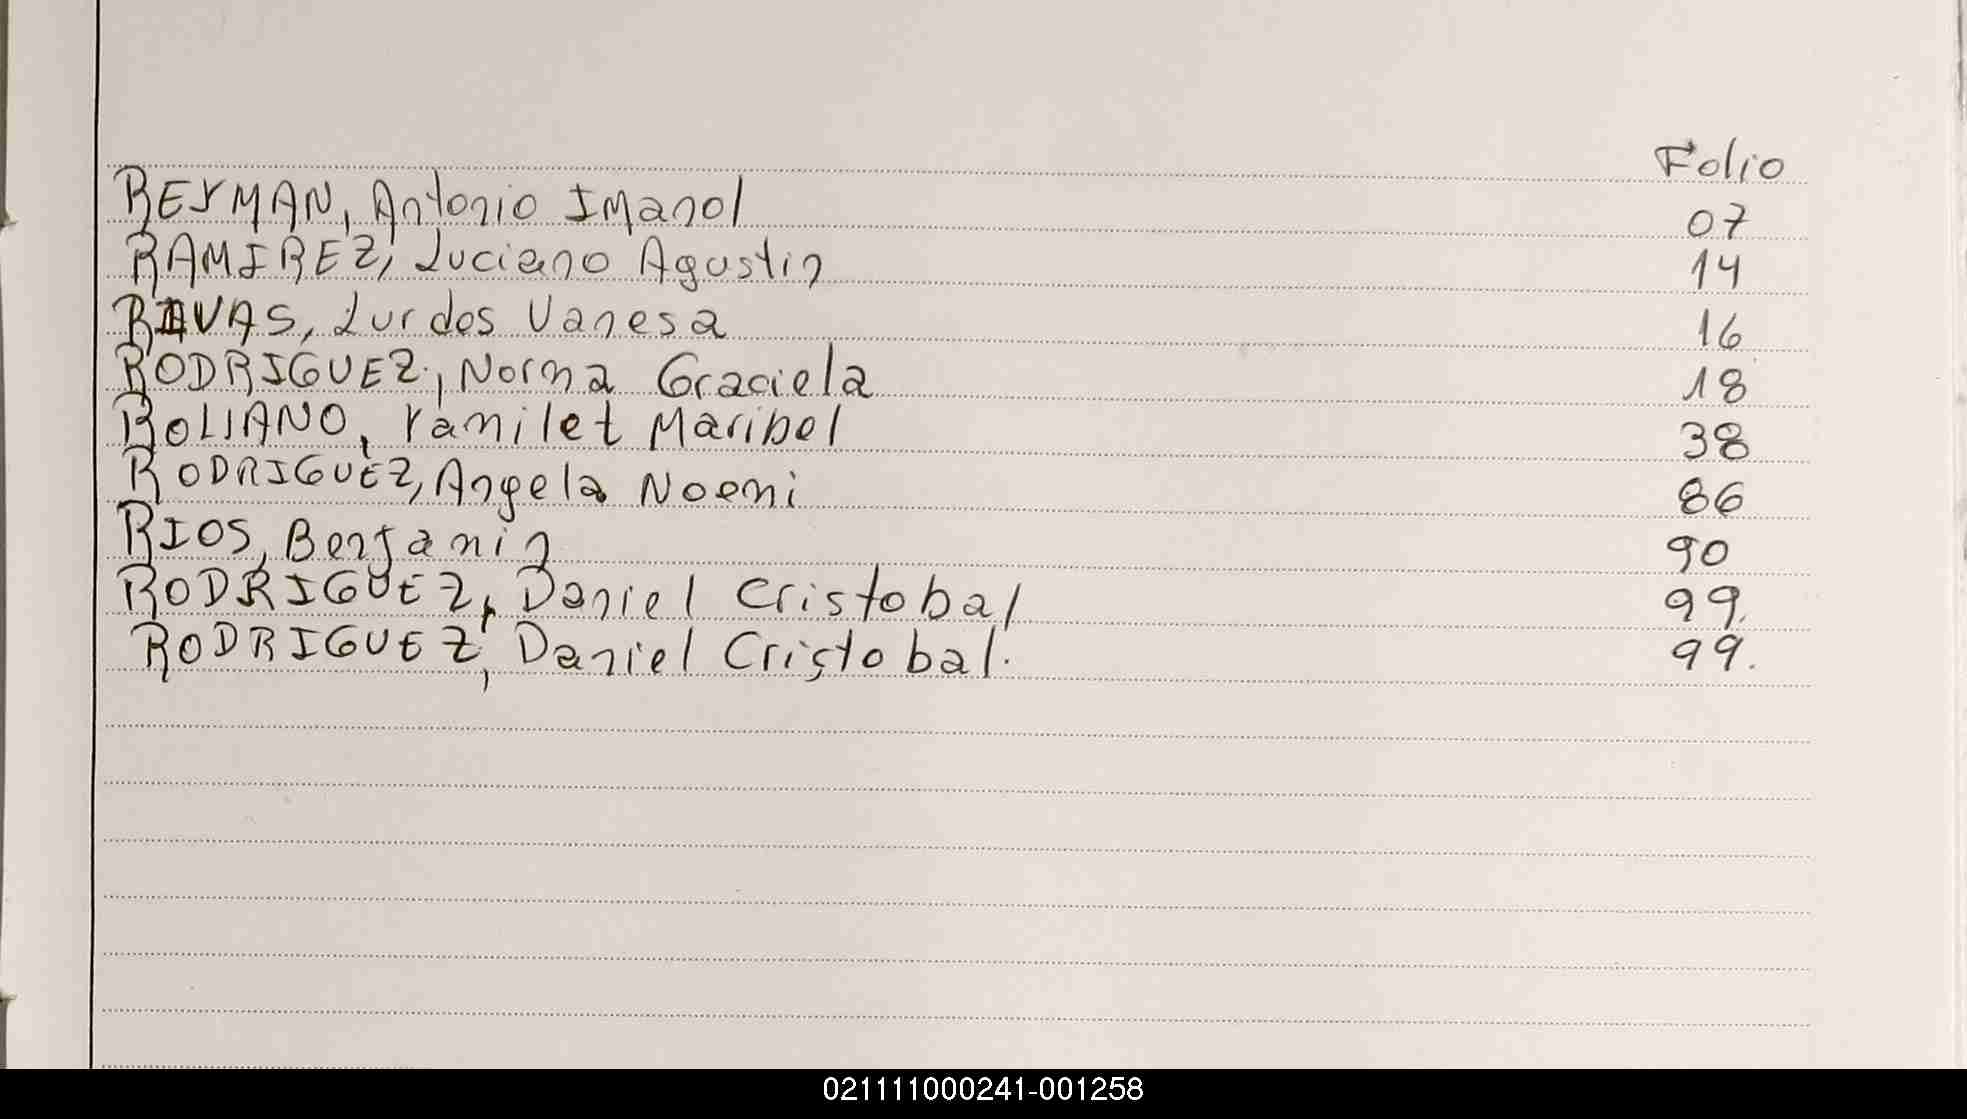 Folio
REYMAN, Antonio Imanol 07
RAMIREZ, Luciano Agustin 14
RIVAS, Lurdes Vanesa 16
RODRIGUEZ, Norma Graciela 18
ROLIANO, Yamilet Maribel 38
RODRIGUEZ, Angela Noemi 86
RIOS, Benjamin 90
RODRIGUEZ, Daniel Cristobal 99.
RODRIGUEZ, Daniel Cristobal. 99.
021111000241-001258